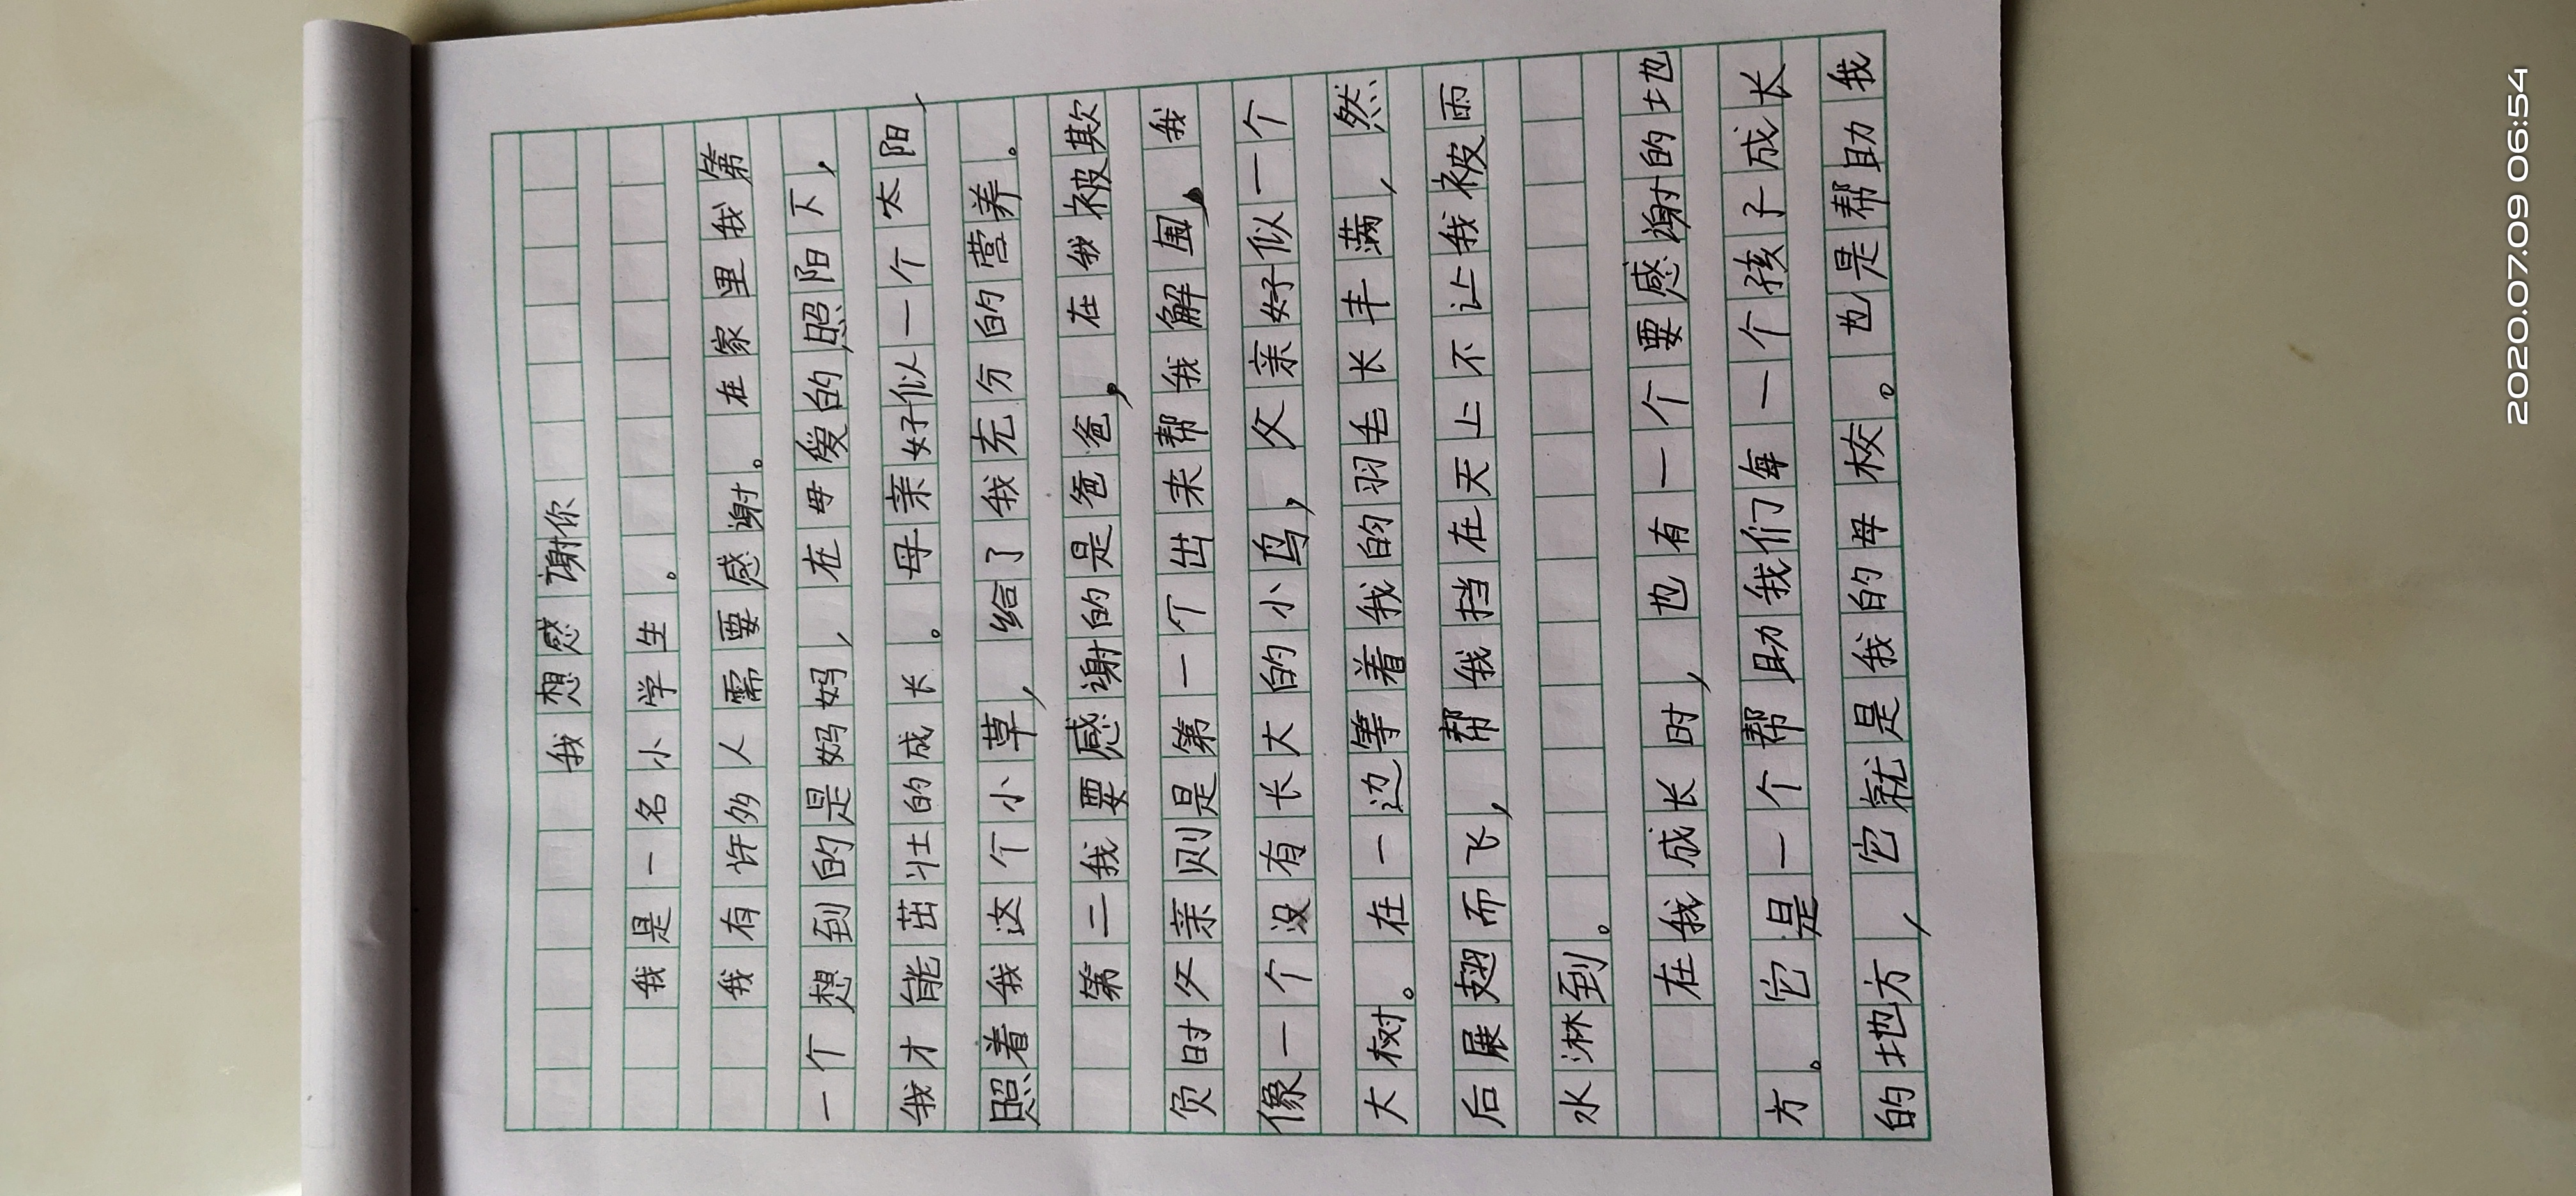 我想感谢你
我是一名小学生。
我有许多人需要感谢。在家里我第
一个想到的是妈妈，在母爱的照阳下，
我才能茁壮的成长。母亲好似一个太阳，
照着我这个小草，给了我充分的营养。
第二我要感谢的是爸爸，在我被欺
负时父亲则是第一个出来帮我解围，我
像一个没有长大的小鸟，父亲好似一个
大树。在一边等着我的羽毛长丰满，然
后展翅而飞，帮我挡在天上不让我被雨
水淋到。
在我成长时，也有一个要感谢的地
方。它是一个帮助我们每一个孩子成长
的地方，它就是我的母校。也是帮助我
2020.07.09 06:54